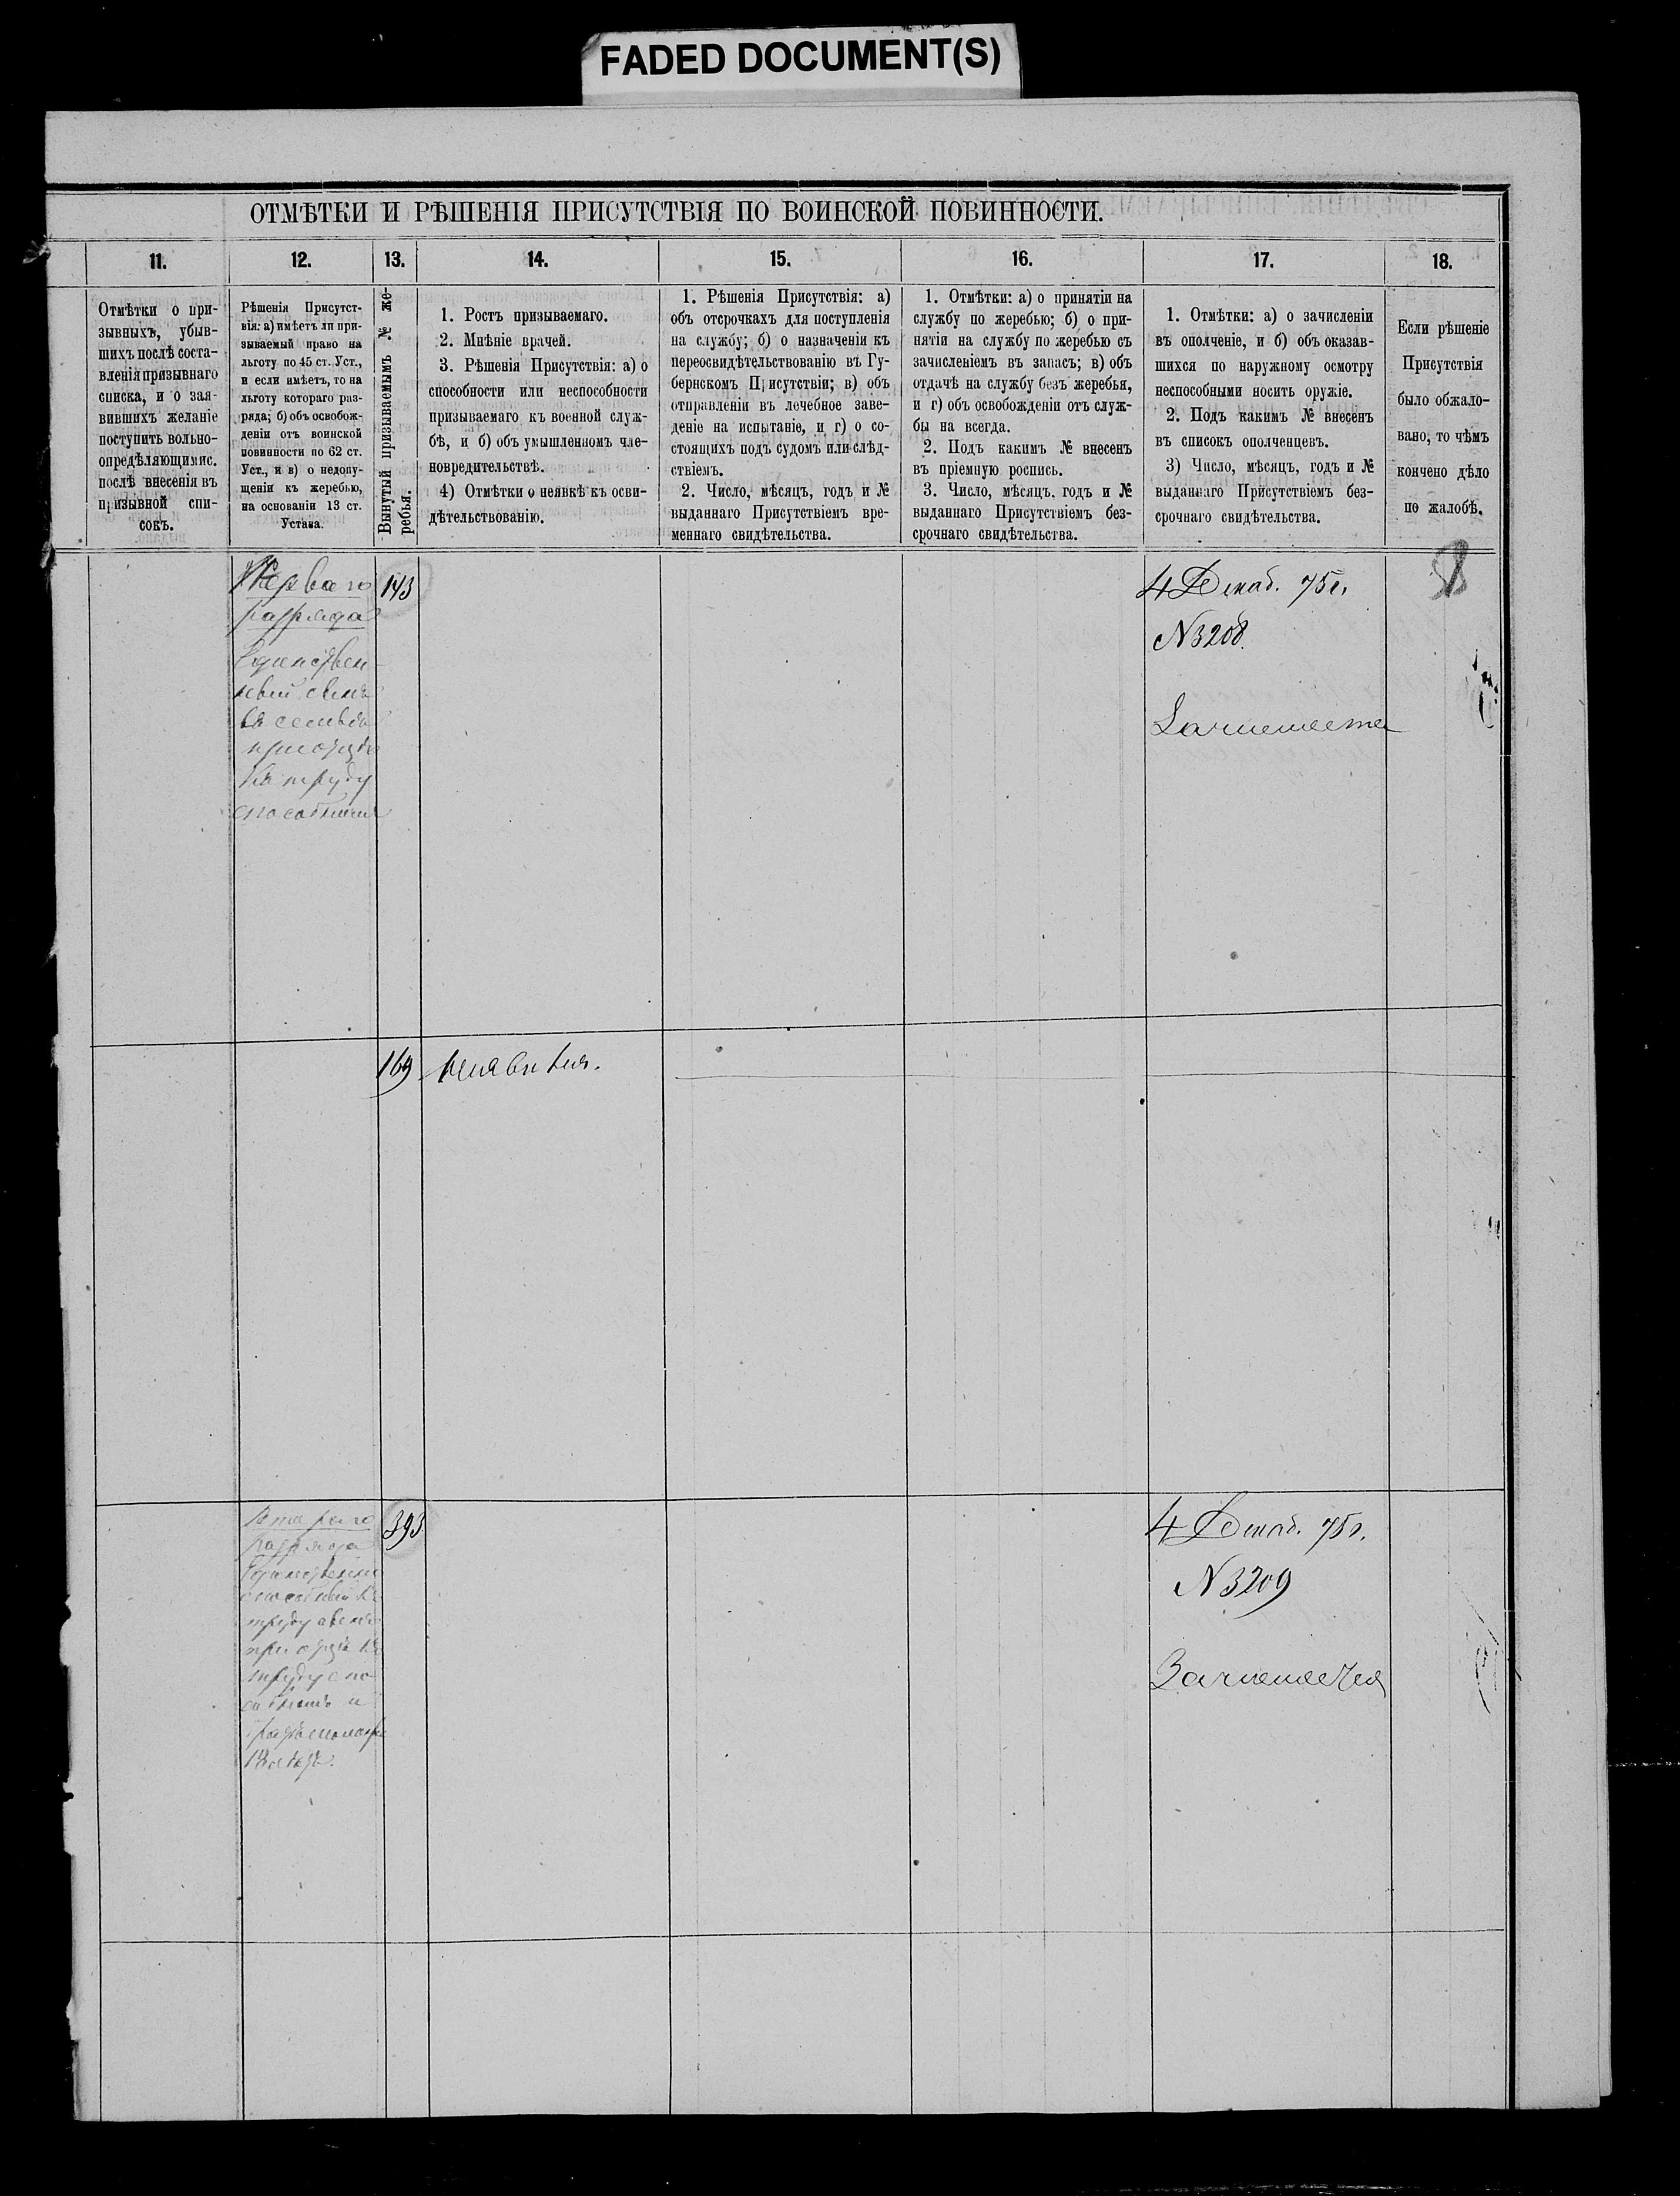 FADED DOCUMENT(S)
ОТМѢТКИ И РѢШЕНІЯ ПРИСУТСТВІЯ ПО ВОИНСКОЙ ПОВИННОСТИ.
11.
Отмѣтки о при-
зывныхъ, убыв-
шихъ послѣ соста-
вленія призывнаго
списка, и о зая-
вившихъ желаніе
поступить вольно-
опредѣляющимис.
послѣ внесенія въ
призывной спи-
сокъ.
12.
Рѣшенія Присутст-
вія: а) имѣетъ ли при-
зываемый право на
льготу по 45 ст. Уст.,
и если имѣетъ, то на
льготу котораго раз-
ряда; б) объ освобож-
деніи отъ воинской
повинности по 62 ст.
Уст., и в) о недопу-
щеніи къ жеребью,
на основаніи 13 ст.
Устава.
13.
Вынутый призываемымъ № же-
ребья.
14.
1. Ростъ призываемаго.
2. Мнѣніе врачей.
3. Рѣшенія Присутствія: а) о
способности или неспособности
призываемаго къ военной служ-
бѣ, и б) объ умышленномъ чле-
новредительствѣ.
4) Отмѣтки о неявкѣ къ осви-
дѣтельствованію.
15.
1. Рѣшенія Присутствія: а)
объ отсрочкахъ для поступленія
на службу; б) о назначеніи къ
переосвидѣтельствованію въ Гу-
бернскомъ Присутствіи; в) объ
отправленіи въ лечебное заве-
деніе на испытаніе, и г) о со-
стоящихъ подъ судомъ или слѣд-
ствіемъ.
2. Число, мѣсяцъ, годъ и №
выданнаго Присутствіемъ вре-
меннаго свидѣтельства.
16.
1. Отмѣтки: а) о принятіи на
службу по жеребью; б) о при-
нятіи на службу по жеребью съ
зачисленіемъ въ запасъ; в) объ
отдачѣ на службу безъ жеребья,
и г) объ освобожденіи отъ служ-
бы на всегда.
2. Подъ какимъ № внесенъ
въ пріемную роспись.
3. Число, мѣсяцъ. годъ и №
выданнаго Присутствіемъ без-
срочнаго свидѣтельства.
17.
1. Отмѣтки: а) о зачисленіи
въ ополченіе, и б) объ оказав-
шихся по наружному осмотру
неспособными носить оружіе.
2. Подъ какимъ № внесенъ
въ списокъ ополченцевъ.
3) Число, мѣсяцъ, годъ и №
выданнаго Присутствіемъ без-
срочнаго свидѣтельства.
18.
Если рѣшеніе
Присутствія
было обжало-
вано, то чѣмъ
кончено дѣло
по жалобѣ.
Перваго
разряда
Единствен-
ный сынъ
въ семьѣ
при отцѣ
къ труду
способномъ
143
4 Декаб. 75 г.
№ 3208.
169
неявился.
Втораго
разряда
способный къ
труду
при отцѣ къ
труду спо-
собномъ и
393
4 Декаб. 75 г.
№ 3209